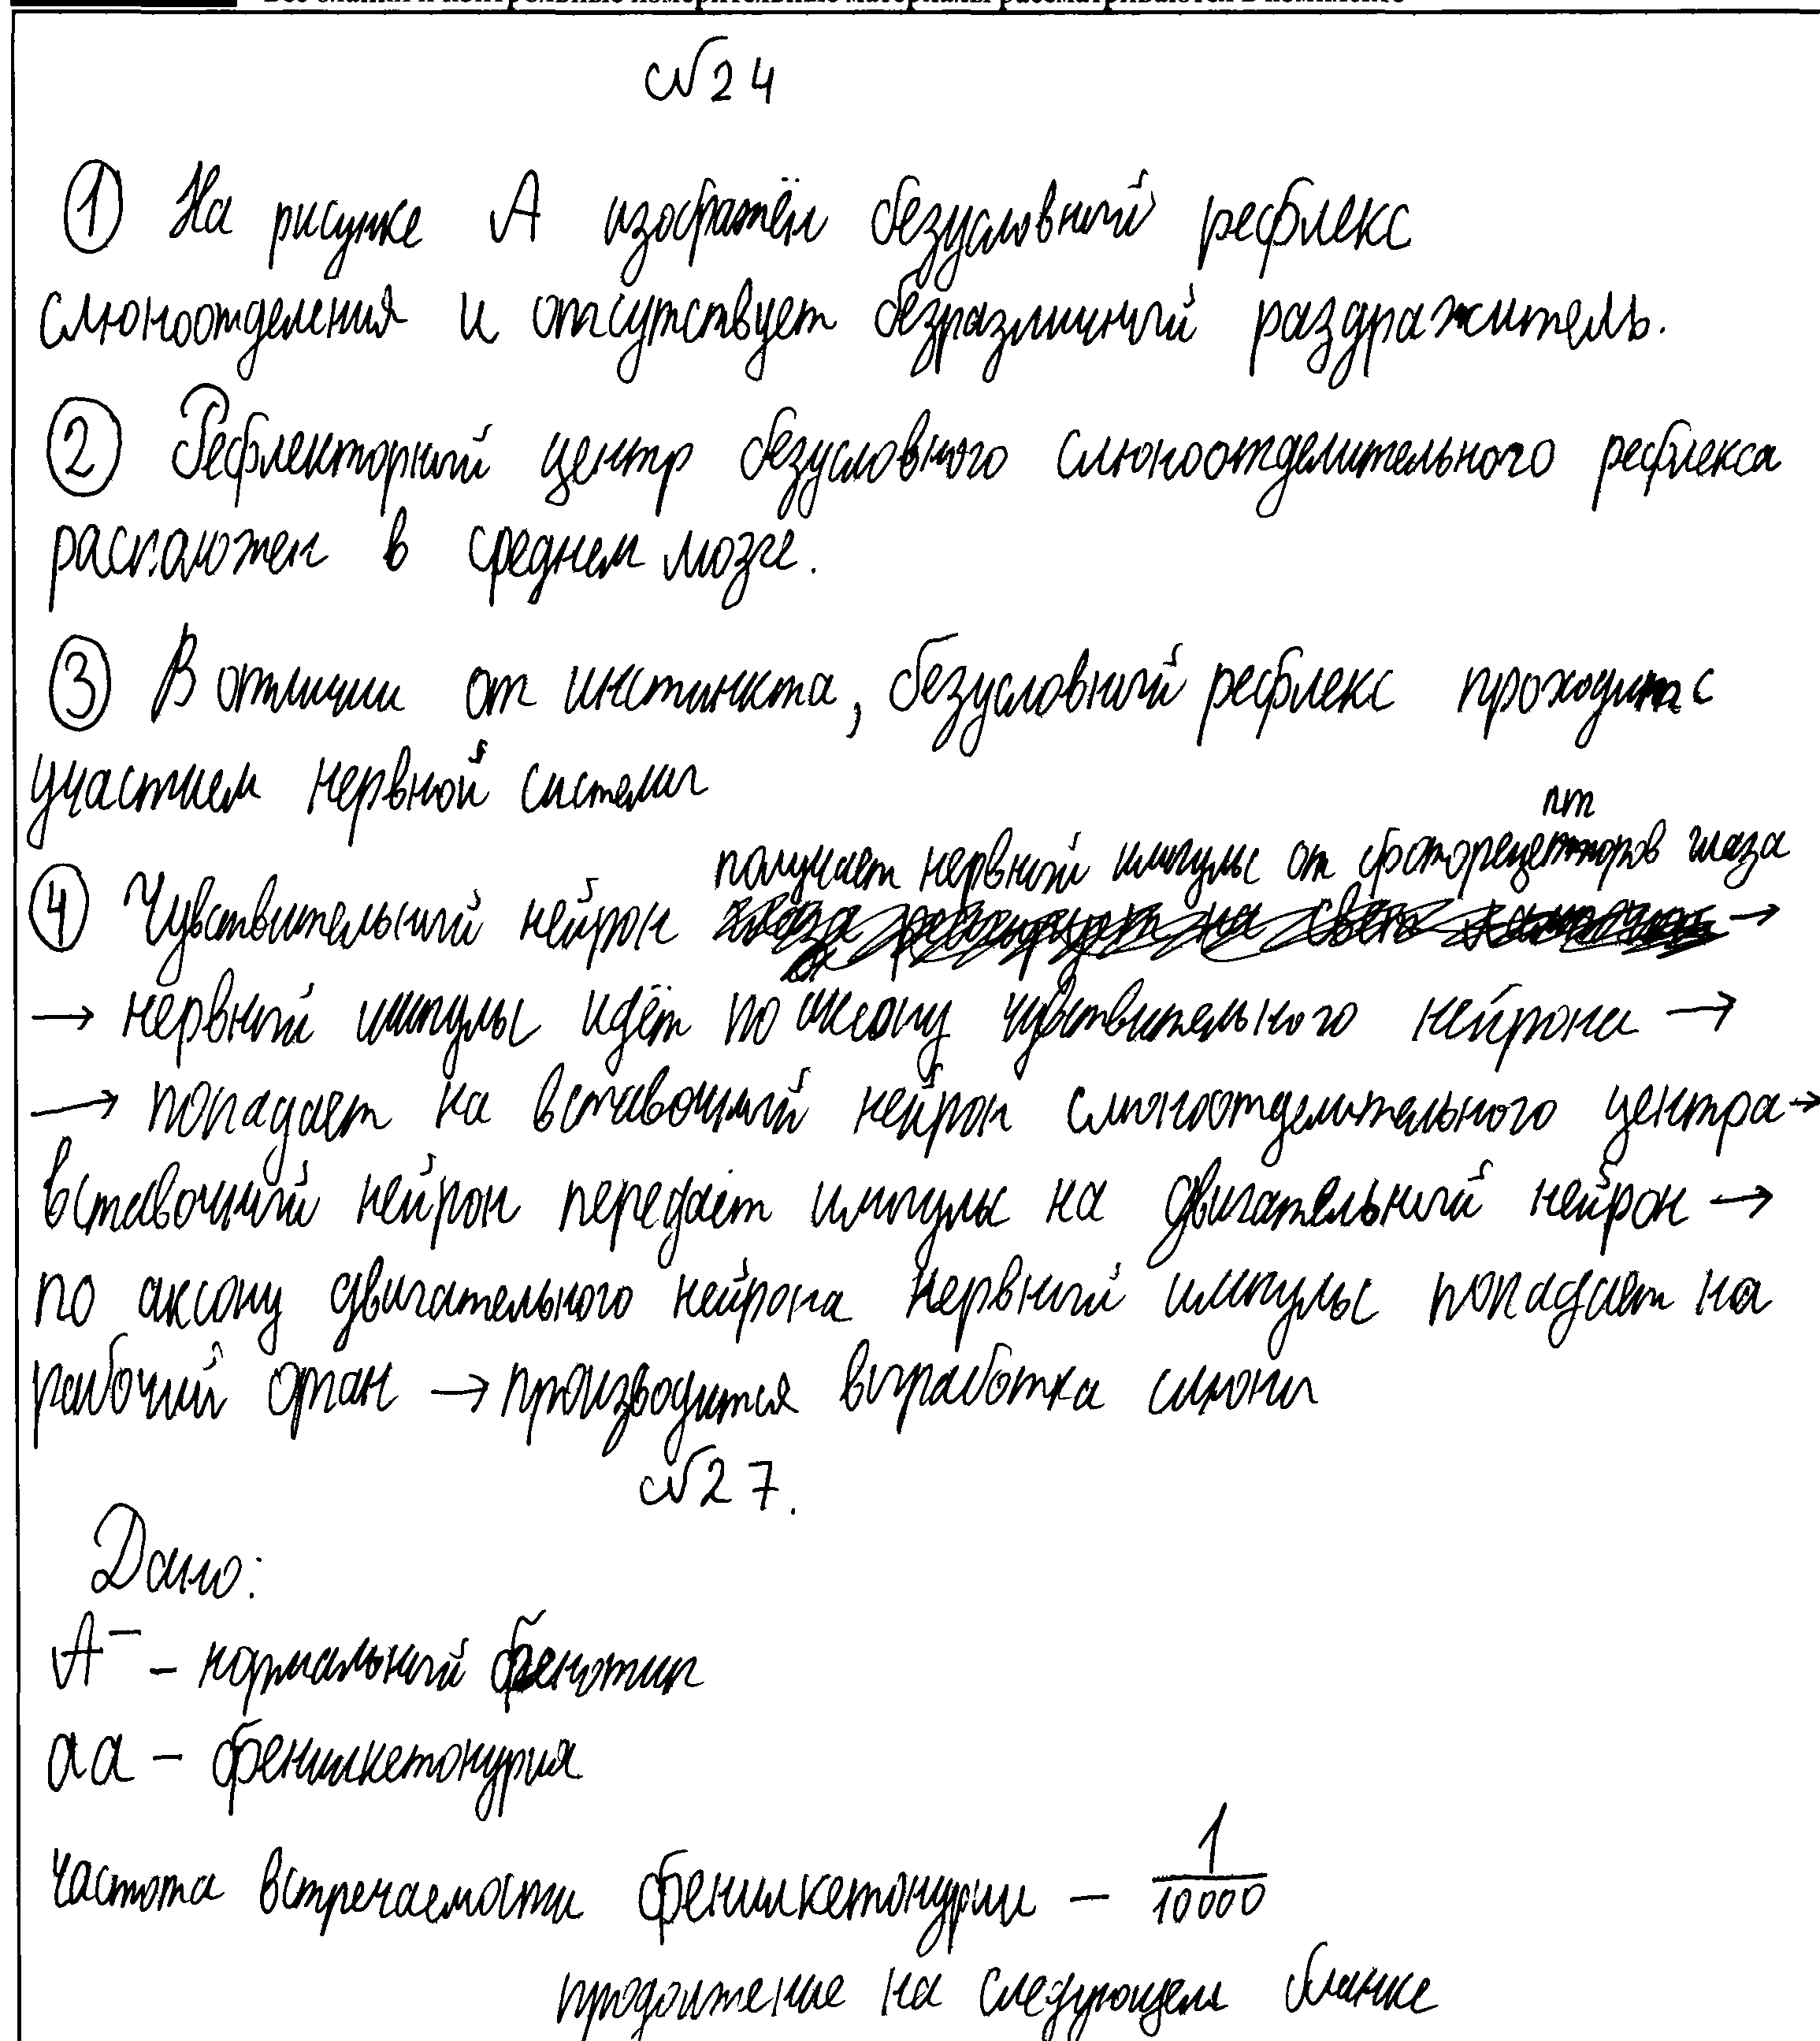 №24
① На рисунке А изображён безусловный рефлекс
слюноотделения и отсутствует безразличный раздражитель.
② Рефлекторный центр безусловного слюноотделительного рефлекса
расположен в среднем мозге.
③ В отличии от инстинкта, безусловный рефлекс проходит с
участием нервной системы
пт
получает нервный импульс от фоторецепторов глаза
④ Чувствительный нейрон →
→ нервный импульс идёт по аксону чувствительного нейрона →
→ попадает на вставочный нейрон слюноотделительного центра →
вставочный нейрон передаёт импульс на двигательный нейрон →
по аксону двигательного нейрона нервный импульс попадает на
рабочий орган → производится выработка слюны
№27.
Дано:
А⁻ – нормальный фенотип
аа – фенилкетонурия
частота встречаемости фенилкетонурии – 1/10000
продолжение на следующем бланке